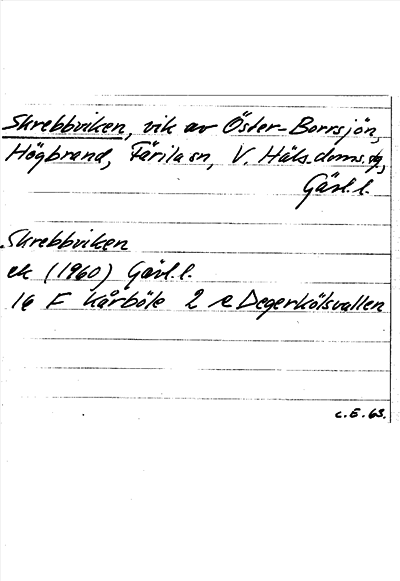 Skrebbviken, vik av Öster-Borrsjön,
Högbrand, Färila sn, V. Häls. doms.sg,
Gävl. l.
Skrebbviken
ek (1960) Gävl. l.
16 F Kårböle 2 e Degerkölsvallen
C.E. 63.